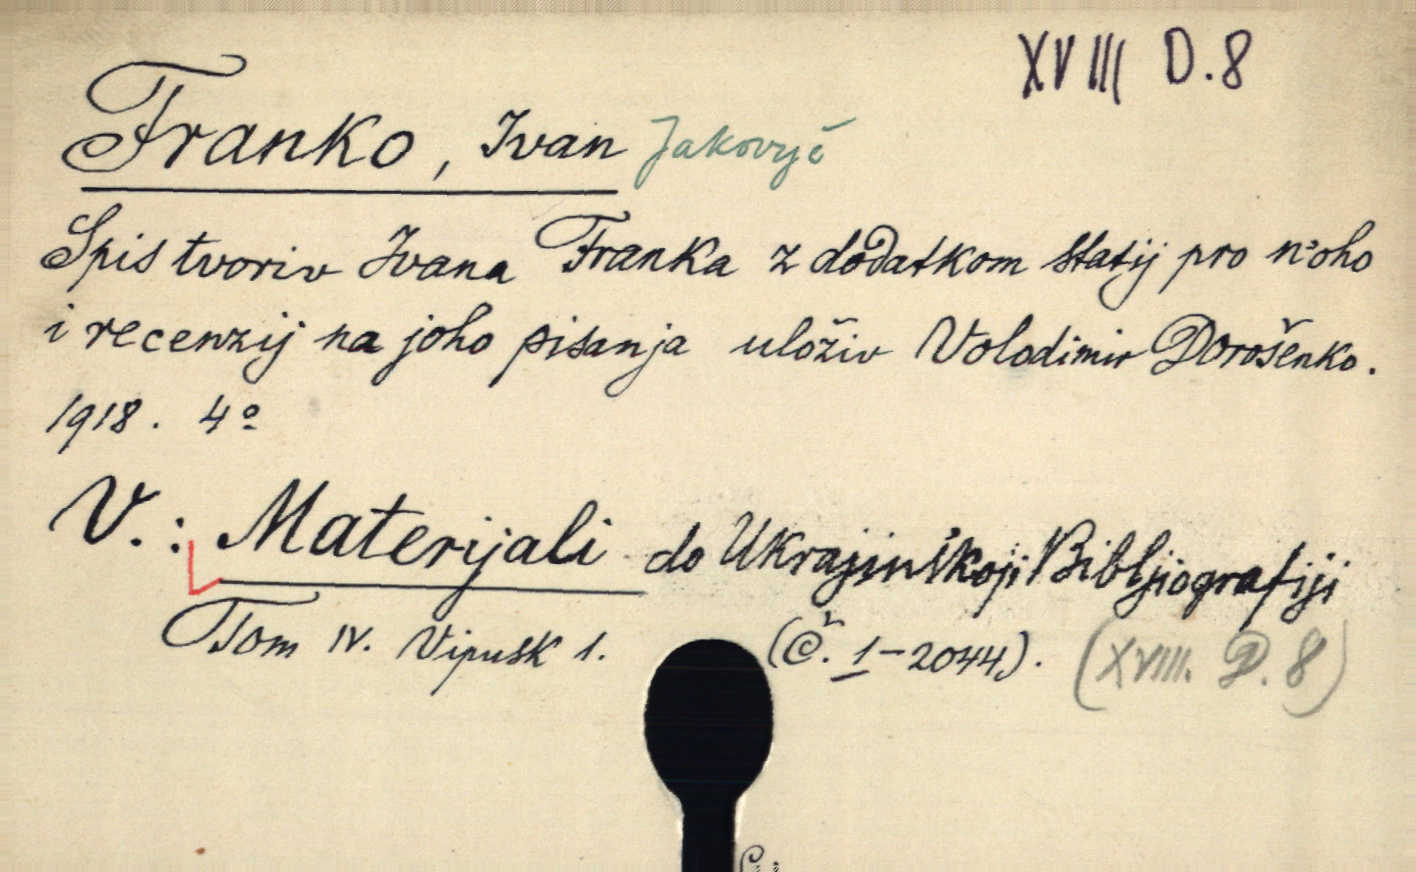 XVIII D.8
Franko, Ivan Jakovyč
Spis tvoriv Ivana Franka z dodatkom statij pro n'oho
i recenzij na joho pisanja uloživ Volodimir Dorošenko.
1918. 4º
V.: Materijali do Ukrajinśkoji Bibljiografiji
Tom IV. Vipusk 1. (Č. 1-2044). (XVIII. D. 8)